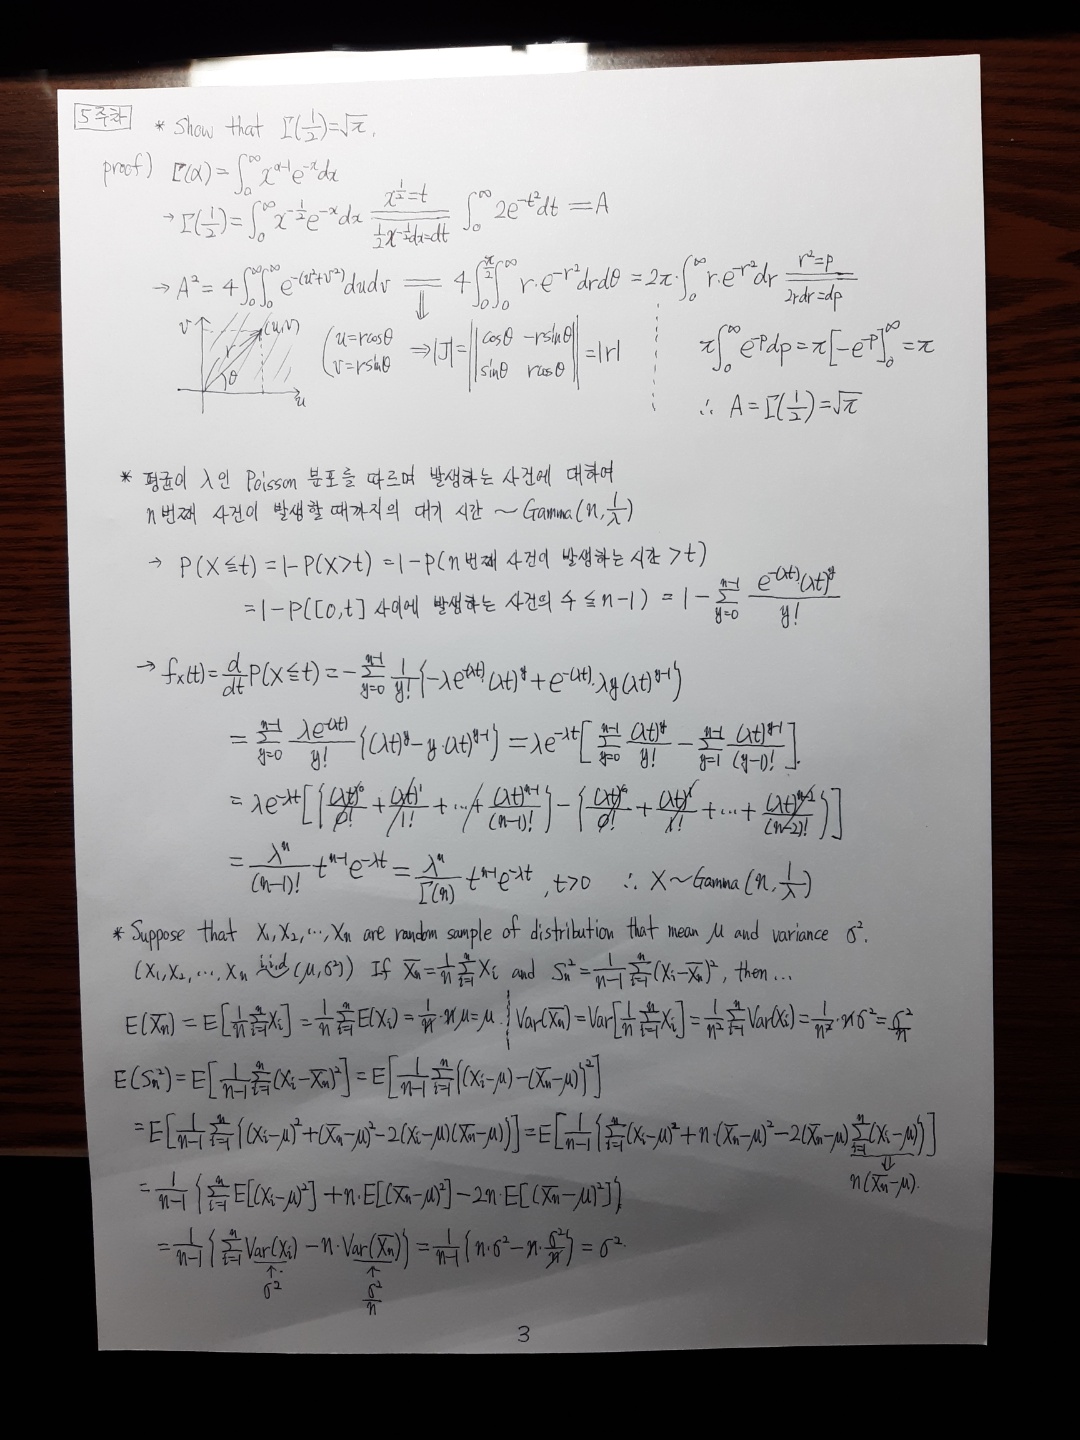 5주차
* Show that Γ(1/2)=√π.
proof) Γ(α)=∫₀^∞ x^(α-1)e^(-x)dx
→ Γ(1/2)=∫₀^∞ x^(-1/2)e^(-x)dx  x^(1/2)=t  (1/2)x^(-1/2)dx=dt  ∫₀^∞ 2e^(-t²)dt = A
→ A² = 4∫₀^∞∫₀^∞ e^(-(u²+v²))dudv = 4∫₀^(π/2)∫₀^∞ r·e^(-r²)drdθ = 2π·∫₀^∞ r·e^(-r²)dr  r²=p  2rdr=dp
v (u,v) r θ u
(u=rcosθ
v=rsinθ ⇒ |J|=||cosθ -rsinθ
sinθ rcosθ||=|r|
π∫₀^∞ e^(-p)dp=π[-e^(-p)]₀^∞=π
∴ A=Γ(1/2)=√π
* 평균이 λ인 Poisson 분포를 따르며 발생하는 사건에 대하여
n번째 사건이 발생할 때까지의 대기 시간 ~ Gamma(n, 1/λ)
→ P(X≦t) = 1-P(X>t) = 1-P(n번째 사건이 발생하는 시간 >t)
= 1-P([0,t] 사이에 발생하는 사건의 수 ≦ n-1) = 1-Σ_(y=0)^(n-1) e^(-(λt))(λt)^y / y!
→ fx(t)= d/dt P(X≦t) = -Σ_(y=0)^(n-1) 1/y! {-λe^(-(λt))·(λt)^y + e^(-(λt))·λy(λt)^(y-1)}
= Σ_(y=0)^(n-1) λe^(-(λt))/y! {(λt)^y - y·(λt)^(y-1)} = λe^(-λt)[Σ_(y=0)^(n-1) (λt)^y/y! - Σ_(y=1)^(n-1) (λt)^(y-1)/(y-1)!].
= λe^(-λt)[{(λt)^0/0! + (λt)^1/1! + ... + (λt)^(n-1)/(n-1)!} - {(λt)^0/0! + (λt)^1/1! + ... + (λt)^(n-2)/(n-2)!}]
= λ^n/(n-1)! t^(n-1)e^(-λt) = λ^n/Γ(n) t^(n-1)e^(-λt), t>0 ∴ X~Gamma(n, 1/λ)
* Suppose that X₁,X₂,...,Xn are random sample of distribution that mean μ and variance σ².
(X₁,X₂,...,Xn i.i.d (μ,σ²)) If X̄n=1/n Σ_(i=1)^n Xi and Sn²=1/(n-1) Σ_(i=1)^n (Xi-X̄n)², then...
E(X̄n) = E[1/n Σ_(i=1)^n Xi] = 1/n Σ_(i=1)^n E(Xi) = 1/n·nμ=μ. Var(X̄n)=Var[1/n Σ_(i=1)^n Xi]=1/n² Σ_(i=1)^n Var(Xi)=1/n²·nσ²=σ²/n
E(Sn²)=E[1/(n-1) Σ_(i=1)^n (Xi-X̄n)²] = E[1/(n-1) Σ_(i=1)^n {(Xi-μ)-(X̄n-μ)}²]
= E[1/(n-1) Σ_(i=1)^n {(Xi-μ)²+(X̄n-μ)²-2(Xi-μ)(X̄n-μ)}] = E[1/(n-1) {Σ_(i=1)^n (Xi-μ)²+n·(X̄n-μ)²-2(X̄n-μ)Σ_(i=1)^n (Xi-μ)}]
⇓ n(X̄n-μ).
= 1/(n-1) {Σ_(i=1)^n E[(Xi-μ)²] + n·E[(X̄n-μ)²] - 2n·E[(X̄n-μ)²]}
= 1/(n-1) {Σ_(i=1)^n Var(Xi) - n·Var(X̄n)} = 1/(n-1) {n·σ²-n·σ²/n} = σ².
↑ σ² ↑ σ²/n
3